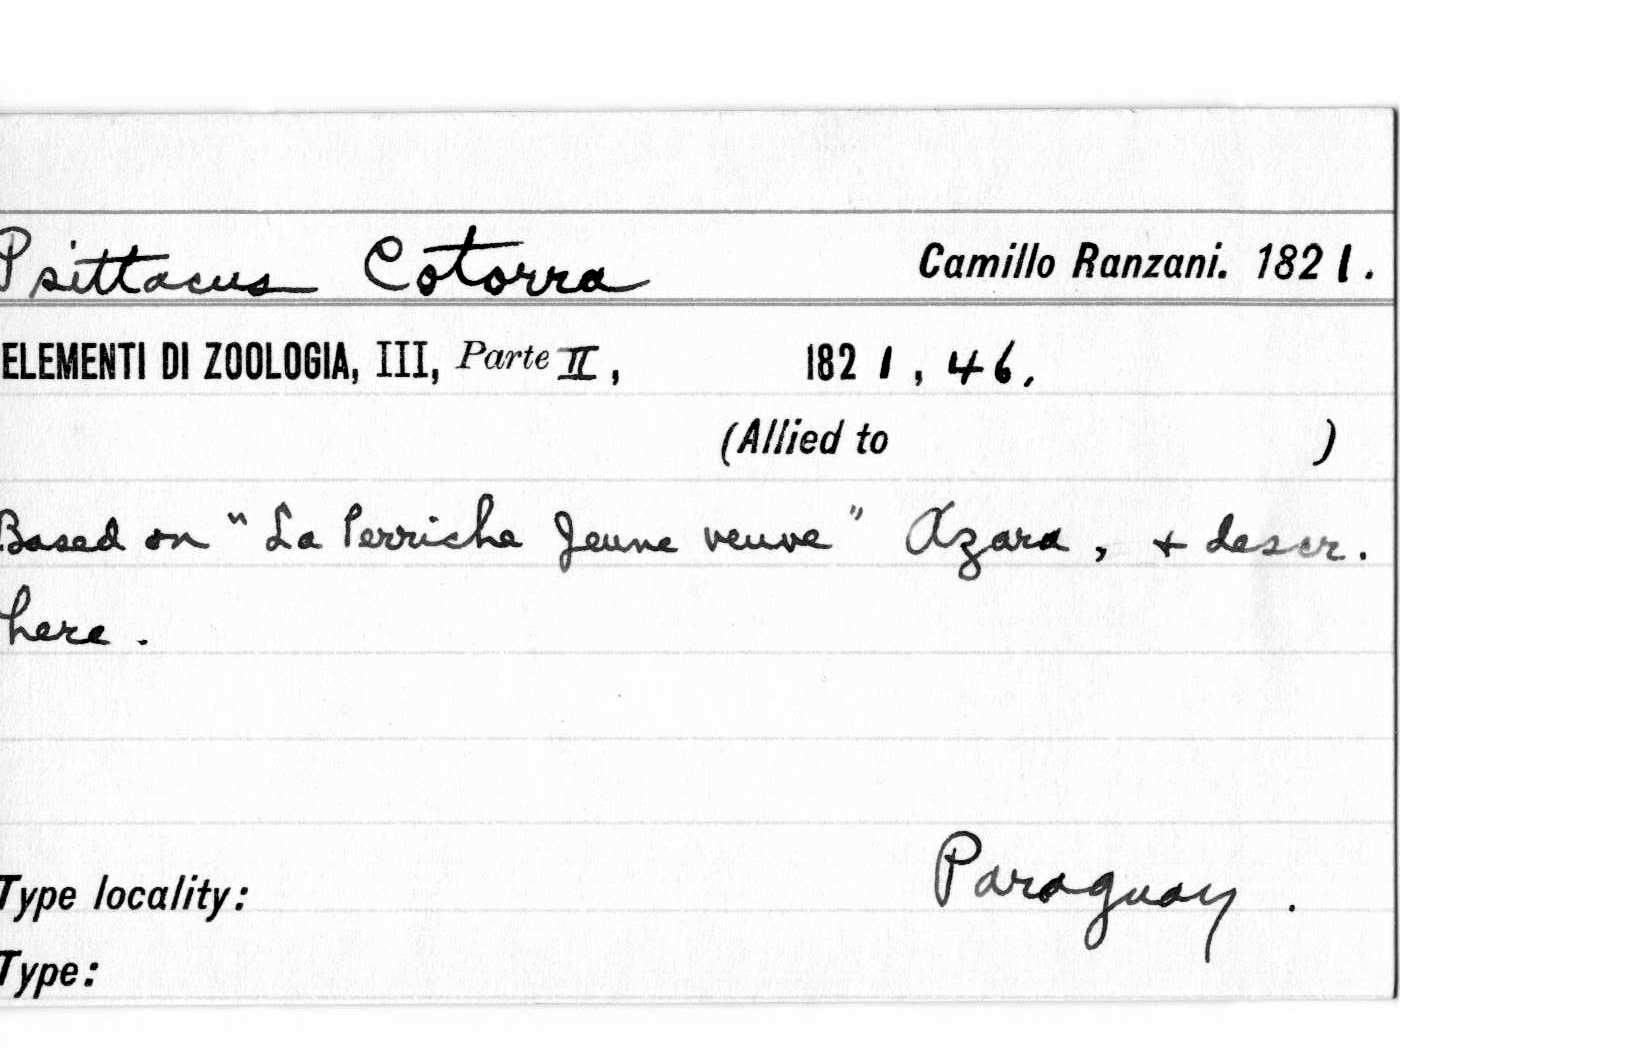 Psittacus Cotorra Camillo Ranzani. 1821.
ELEMENTI DI ZOOLOGIA, III, Parte II, 1821, 46.
(Allied to )
Based on "La Perriche Jeune veuve" Azara, + descr.
here.
Type locality: Paraguay.
Type: